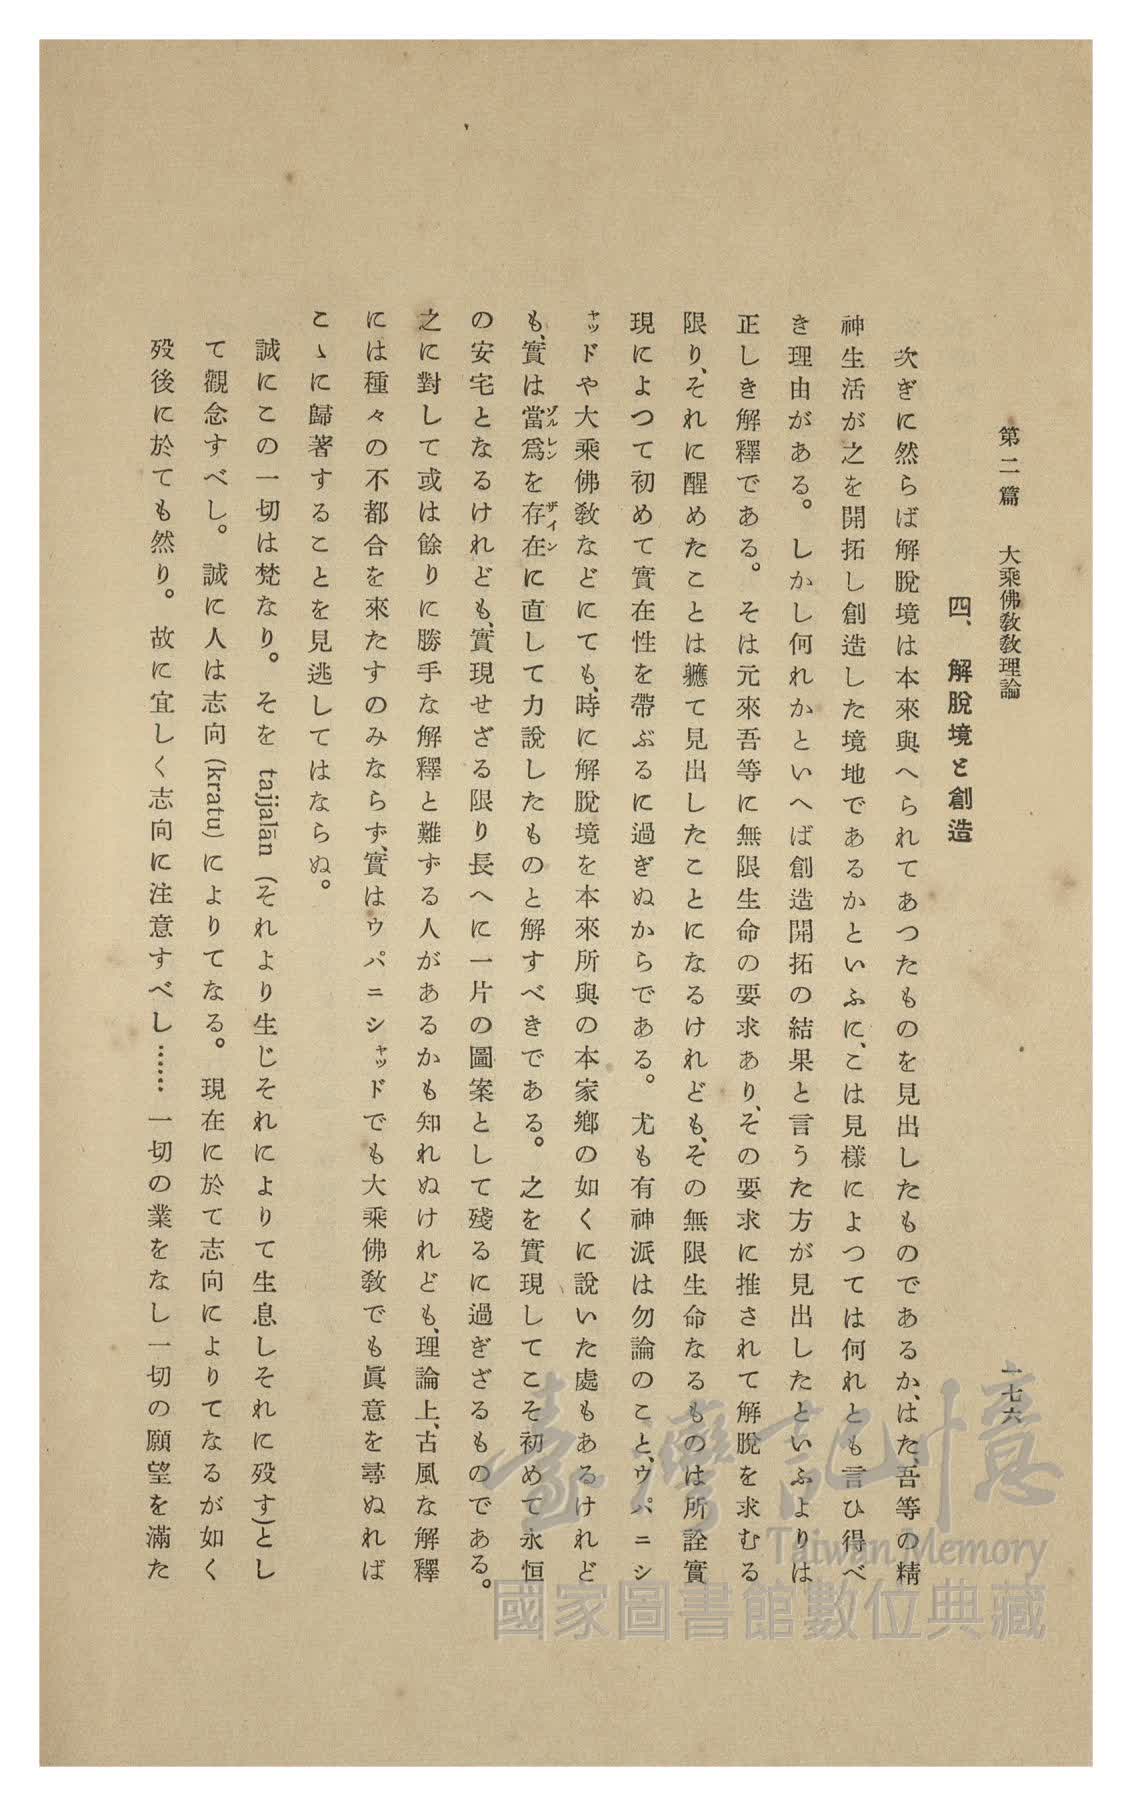 第二篇　大乘佛敎敎理論
一七六
四、　解脫境と創造
次ぎに然らば解脫境は本來與へられてあつたものを見出したものであるか、はた、吾等の精
神生活が之を開拓し創造した境地であるかといふに、こは見樣によつては何れとも言ひ得べ
き理由がある。しかし何れかといへば創造開拓の結果と言うた方が見出したといふよりは
正しき解釋である。そは元來吾等に無限生命の要求あり、その要求に推されて解脫を求むる
限り、それに醒めたことは軈て見出したことになるけれども、その無限生命なるものは所詮實
現によつて初めて實在性を帶ぶるに過ぎぬからである。尤も有神派は勿論のこと、ウパニシ
ャッドや大乘佛敎などにても、時に解脫境を本來所與の本家鄕の如くに說いた處もあるけれど
も、實は當爲ゾルレンを存在ザインに直して力說したものと解すべきである。之を實現してこそ初めて永恒
の安宅となるけれども、實現せざる限り長へに一片の圖案として殘るに過ぎざるものである。
之に對して或は餘りに勝手な解釋と難ずる人があるかも知れぬけれども、理論上、古風な解釋
には種々の不都合を來たすのみならず、實はウパニシャッドでも大乘佛敎でも眞意を尋ぬれば
こゝに歸著することを見逃してはならぬ。
誠にこの一切は梵なり。そを tajjalān (それより生じそれによりて生息しそれに歿す)とし
て觀念すべし。誠に人は志向(kratu)によりてなる。現在に於て志向によりてなるが如く
歿後に於ても然り。故に宜しく志向に注意すべし……一切の業をなし一切の願望を滿た
臺灣記憶
Taiwan Memory
國家圖書館數位典藏